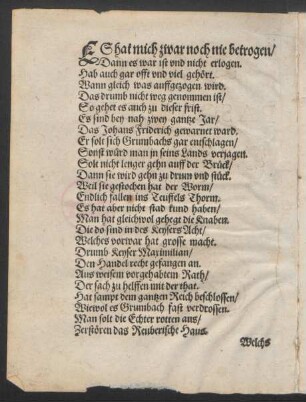 ES hat mich zwar noch nie betrogen/
Dann es war ist vnd nicht erlogen.
Hab auch gar offt vnd viel gehört.
Wann gleich was auffgezogen wird,
Das drumb nicht weg genommen ist/
So gehet es auch zu dieser frist.
Es sind bey nah zwey gantze Jar/
Das Johans Friderich gewarnet ward.
Er solt sich Grumbachs gar entschlagen/
Sonst würd man jn seins Lands verjagen.
Solt nicht lenger gehn auff der Brück/
Dann sie wird gehn zu drun vnd stück.
Weil sie gestochen hat der Worm/
Endlich fallen ins Teuffels Thorm.
Es hat aber nicht stad kund haben/
Man hat gleichwol gehegt die Knaben.
Die do sind in des Keysers Acht/
Welches vorwar hat grosse macht.
Drumb Keyser Maximilian/
Den Handel recht gefangen an.
Aus weisem vorgehabtem Rath/
Der sach zu helffen mit der that.
Hat sampt dem gantzen Reich beschlossen/
Wiewol es Grumbach fast verdrossen.
Man solt die Echter rotten aus/
Zerstören das Reuberische Haus.
Welchs